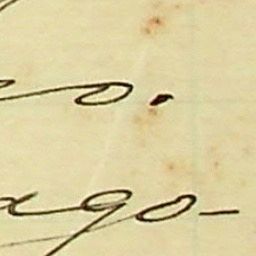 o.
ago-